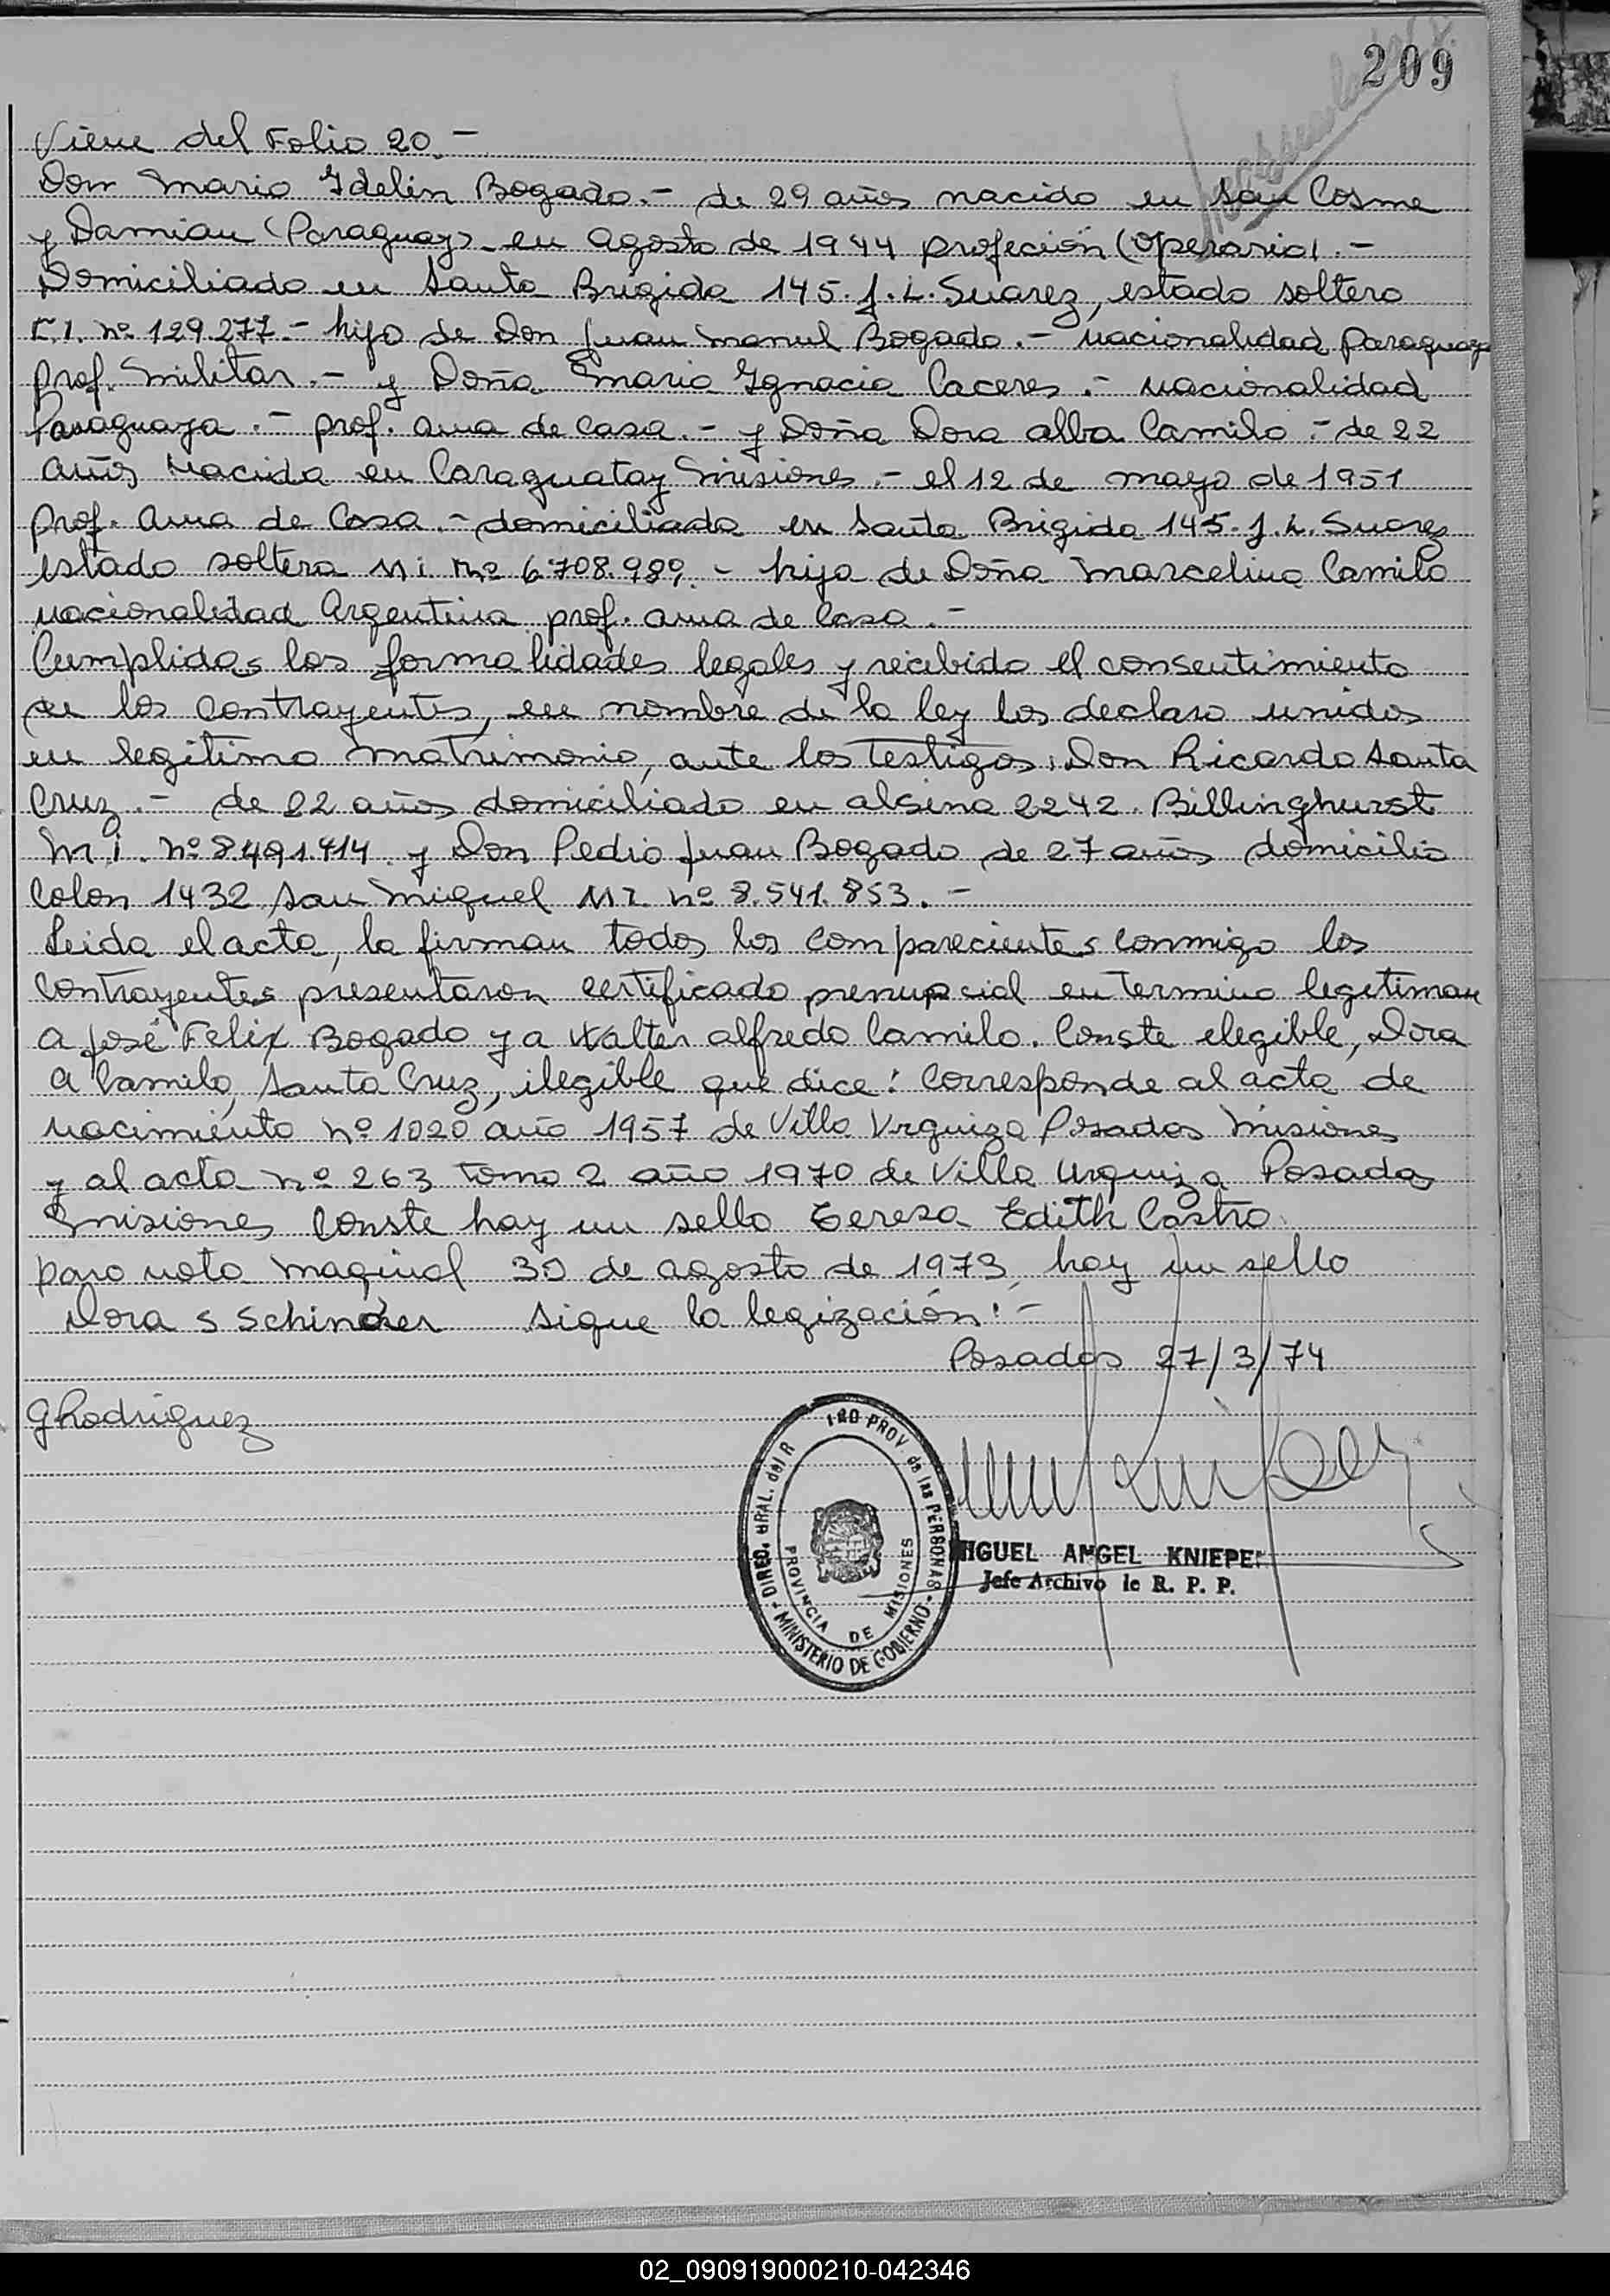 209
Viene del Folio 20.-
Don Mario Idelin Bogado.- de 29 años nacido en San Cosme
y Damian (Paraguay) en agosto de 1944 profeción (operario).-
Domiciliado en Santa Brigida 145. J.L. Suarez, estado soltero
C.I. nº 129.277.- hijo de Don Juan Manuel Bogado.- nacionalidad paraguaya
prof. Militar.- y Doña Maria Ygnacia Caceres.- nacionalidad
Paraguaya.- prof. ama de casa.- y Doña Dora alba Camilo.- de 22
años nacida en Caraguatay Misiones.- el 12 de mayo de 1951
prof. ama de Casa.- domiciliada en Santa Brigida 145- J.L. Suarez
estado soltera M i. nº 6.708.989.- hija de Doña Marcelina Camilo
nacionalidad Argentina prof. ama de casa.-
Cumplidas las formalidades legales y recibido el consentimiento
de los contrayentes, en nombre de la ley los declaro unidos
en legitimo matrimonio, ante los Testigos, Don Ricardo Santa
Cruz.- de 22 años domiciliado en alsina 2242. Billinghurst
M.i. nº 8.491.414 y Don Pedro Juan Bogado de 27 años domicilio
Colon 1432 San Miguel MI. nº 8.541.853.-
Leida el acta, la firman todos los comparecientes conmigo los
contrayentes presentaron certificado prenupcial en termino legitiman
a José Felix Bogado y a Walter alfredo Camilo. Conste elegible, Dora
A Camilo, Santa Cruz, ilegible que dice: Corresponde al acta de
nacimiento nº 1020 año 1957 de Villa Vrquiza Posadas Misiones
y al acta nº 263 tomo 2 año 1970 de Villa Urquiza Posadas
Misiones Conste hay un sello Teresa Edith Castro.
para nota maginal 30 de agosto de 1973, hay un sello
Dora S Schincker sigue la legización:-
Posadas 27/3/74
G Rodriguez
DIREC. GRAL. del R PROV. de las PERSONAS
MINISTERIO DE GOBIERNO
PROVINCIA DE MISIONES
MIGUEL ANGEL KNIEPER
Jefe Archivo de R. P. P.
02_090919000210-042346